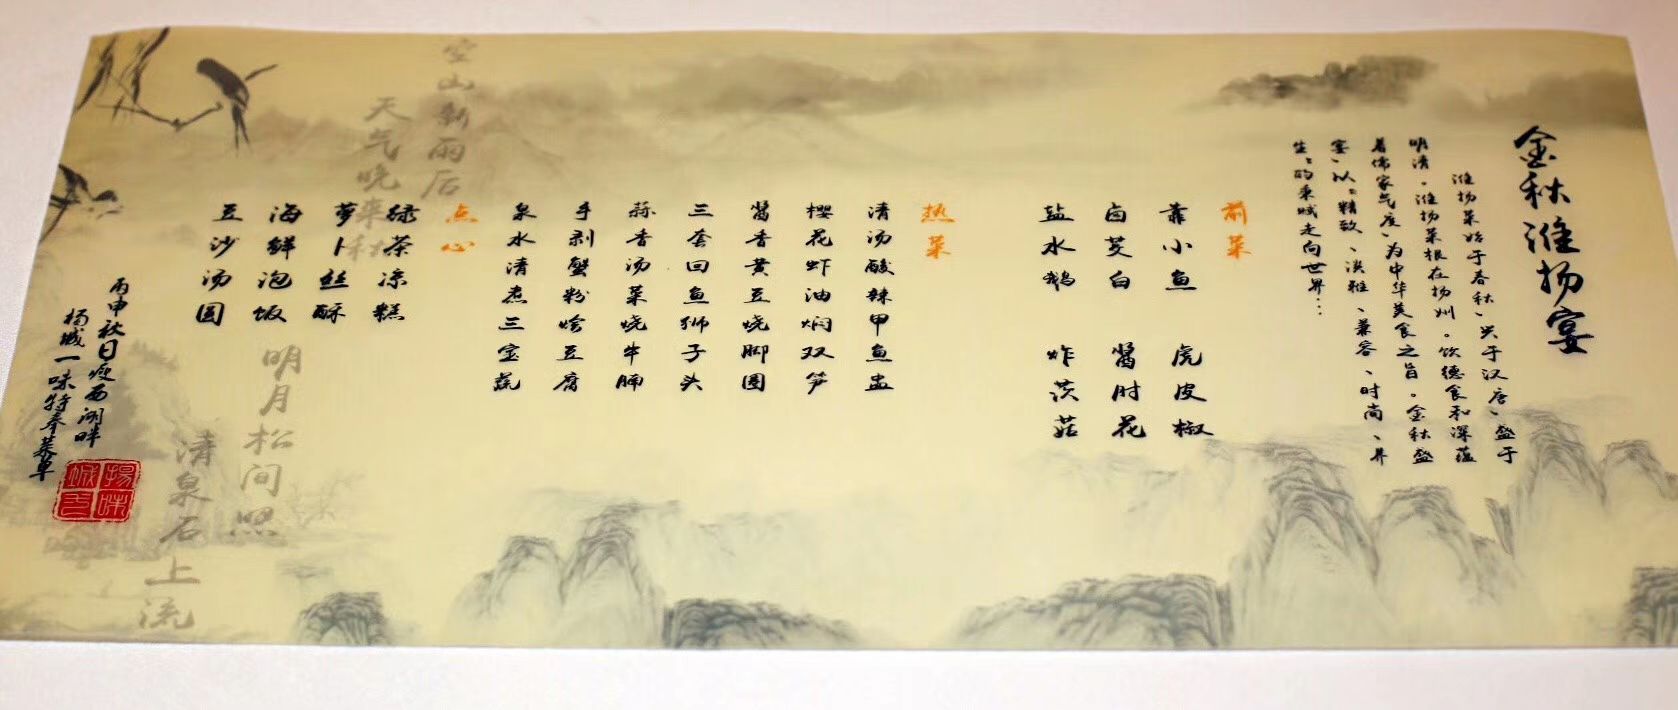 金秋淮扬宴
淮扬菜始于春秋、兴于汉唐、盛于
明清。淮扬菜根在扬州。饮德食和深蕴
着儒家气度、为中华美食之旨。金秋盛
宴、以“精致、淡雅、兼容、时尚、养
生”的秉赋走向世界…
前菜
靠小鱼 虎皮椒
卤茭白 酱肘花
盐水鹅 炸茨菇
热菜
清汤酸辣甲鱼盅
樱花虾油焖双笋
酱香黄豆烧脚圆
三套回鱼狮子头
蒜香汤菜烧牛腩
手剥蟹粉烩豆腐
泉水清煮三宝蔬
点心
绿茶凉糕
萝卜丝酥
海鲜泡饭
豆沙汤圆
丙申秋日瘦西湖畔
扬城一味特奉菜单
扬城一味
空山新雨后
天气晚来秋
明月松间照
清泉石上流